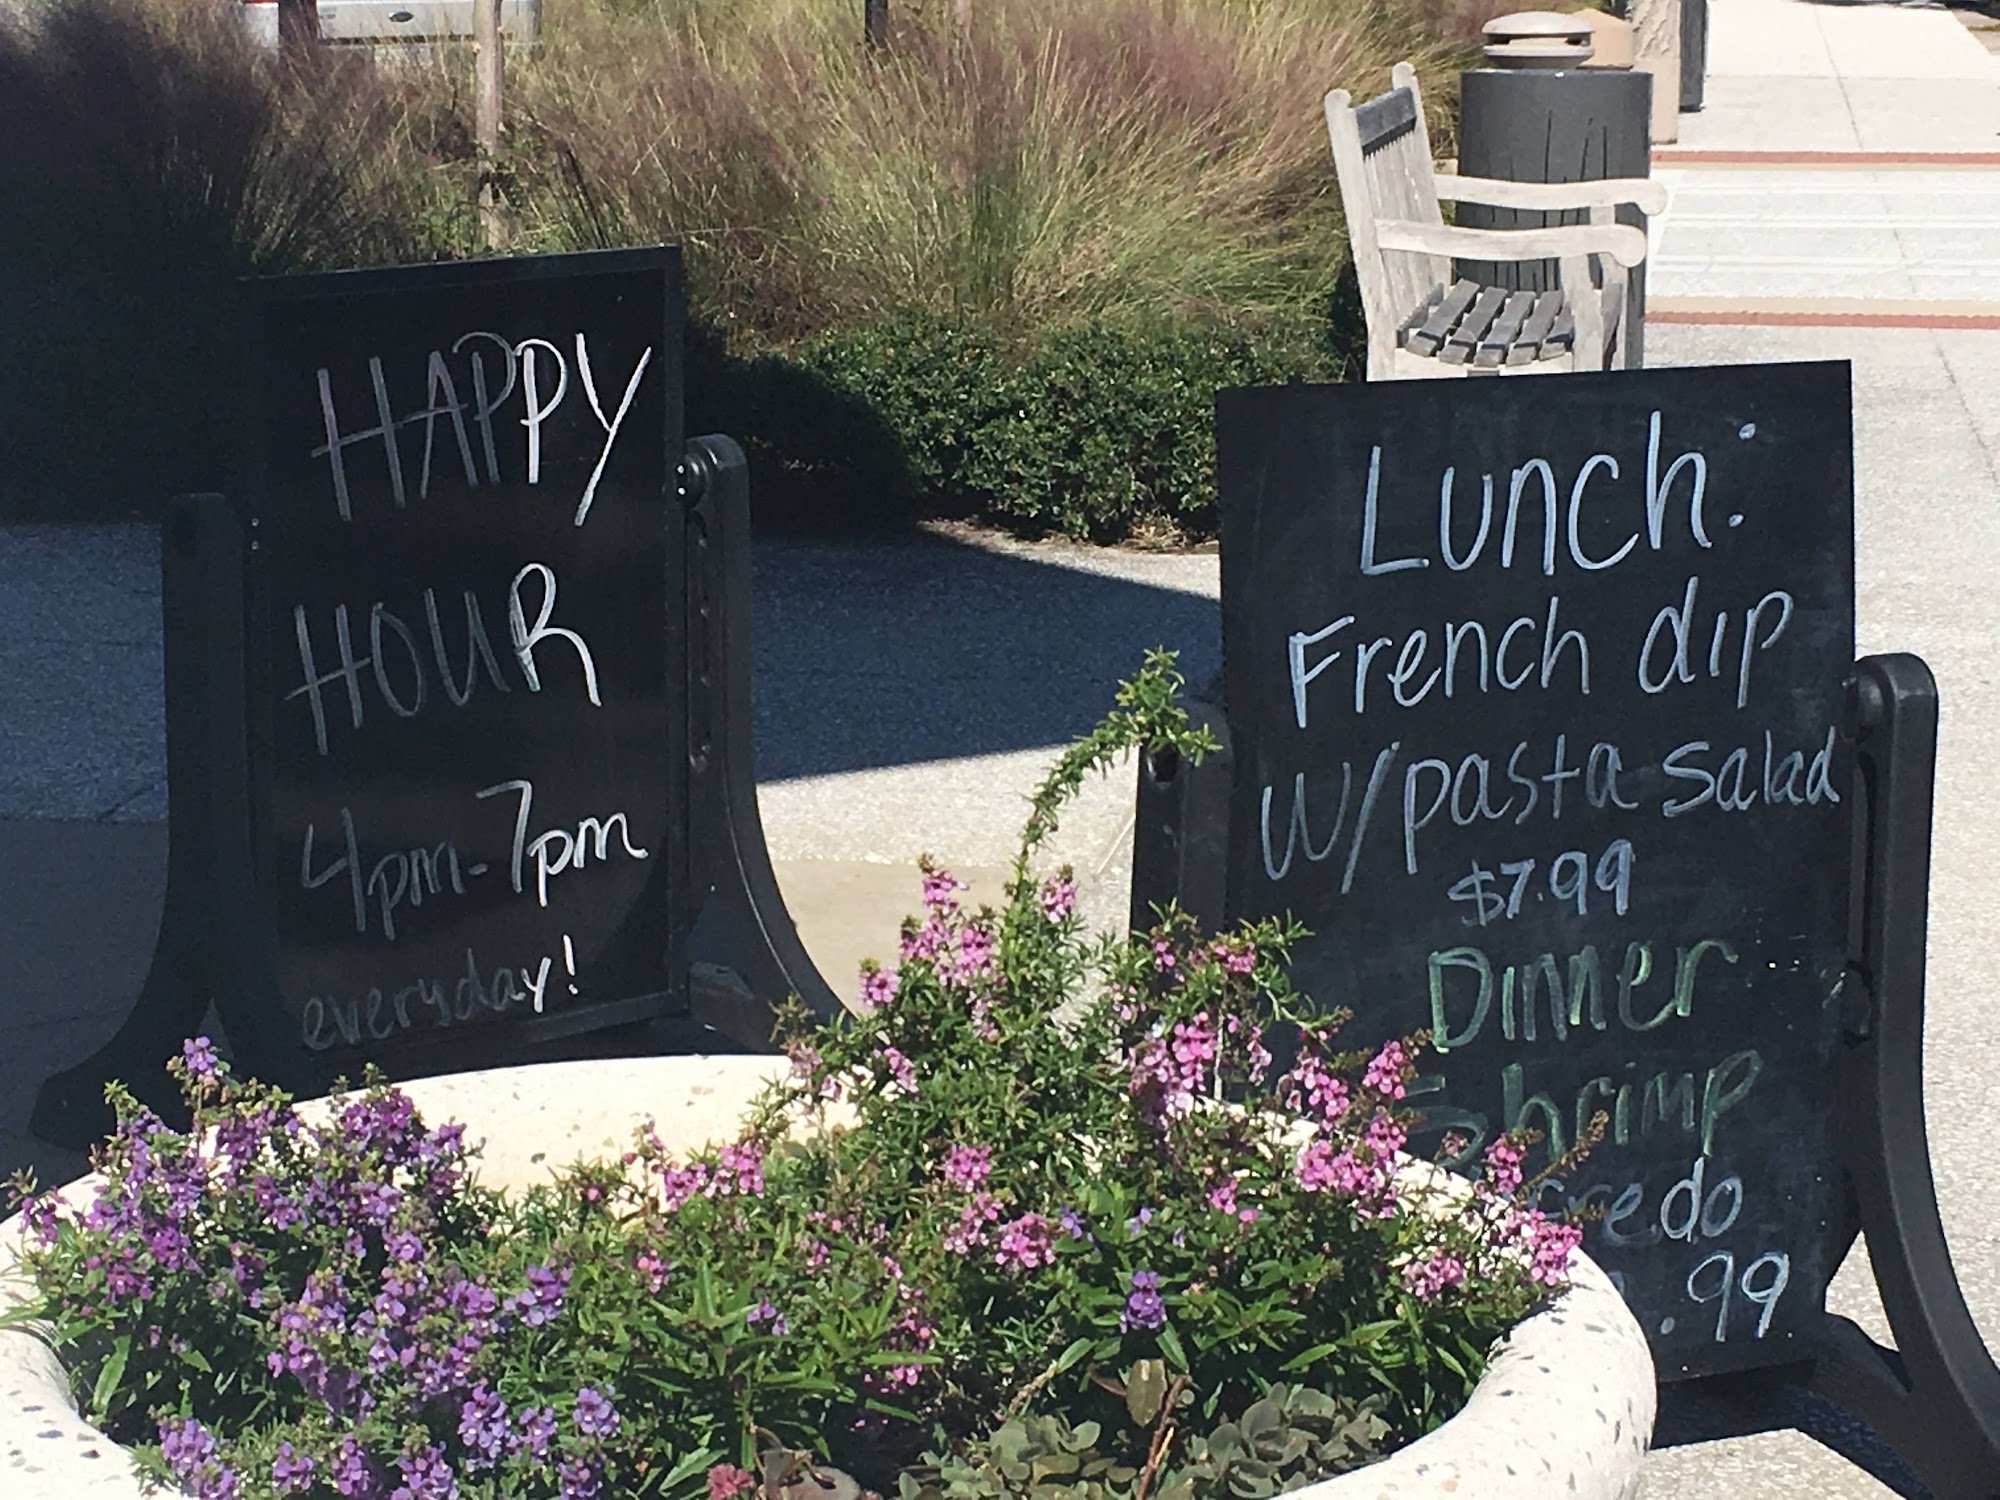 HAPPY
HOUR
4pm-7pm
everyday!
Lunch:
French dip
W/pasta salad
$7.99
Dinner
Shrimp
.99